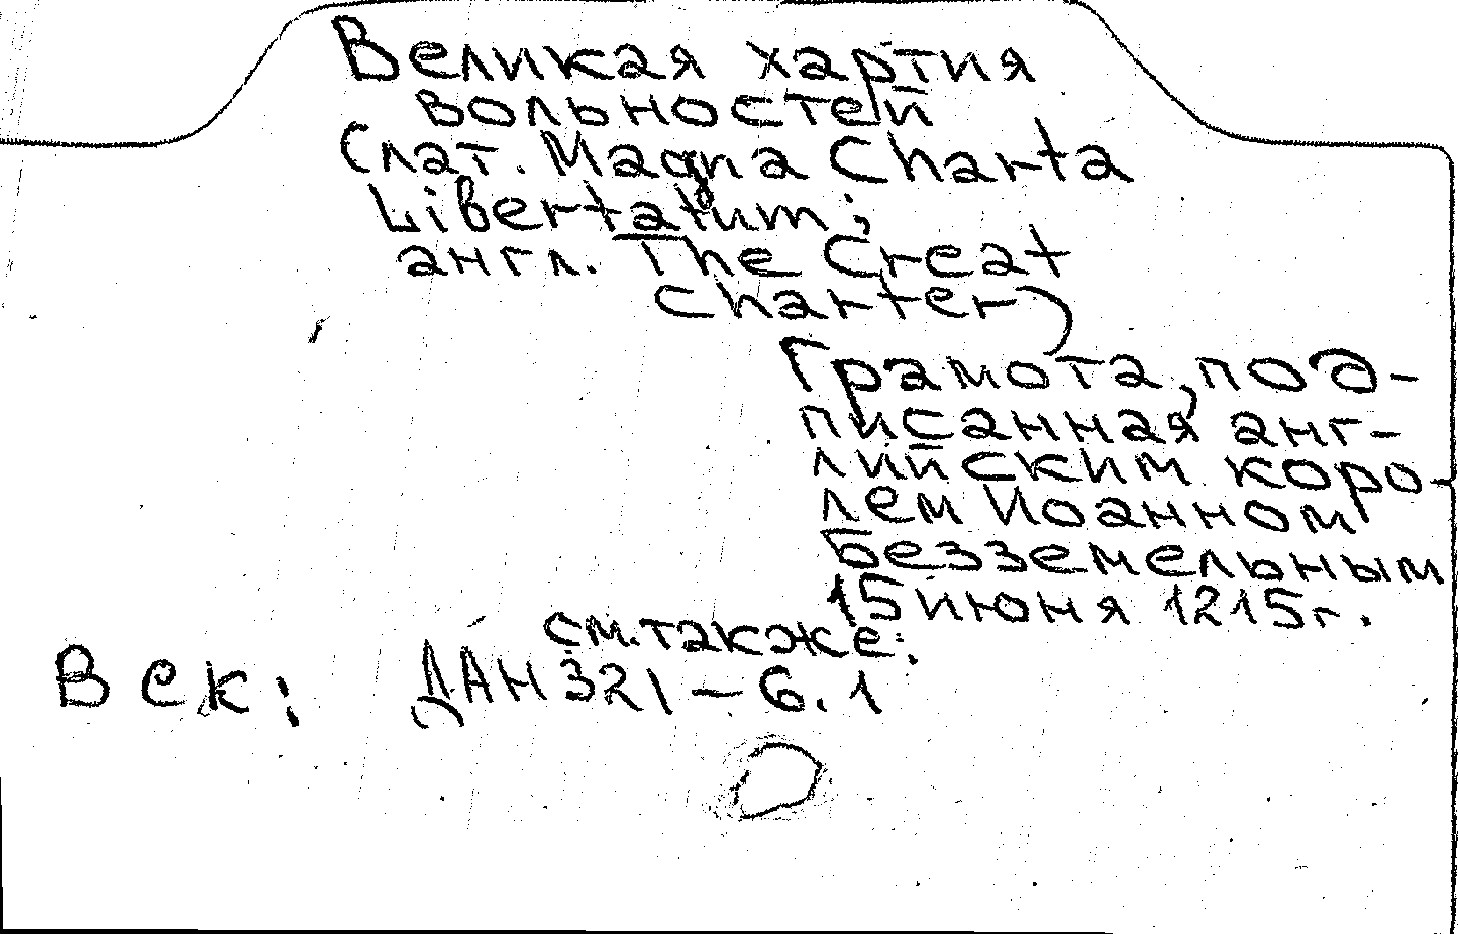 Великая хартия
вольностей
(лат. Magna Charta
Libertatum;
англ. The Great
charter)
Грамота, под-
писанная анг-
лийским коро-
лем Иоанном
Безземельным
15 июня 1215г.
см. также:
В ск: ДАН 321 – 6.1